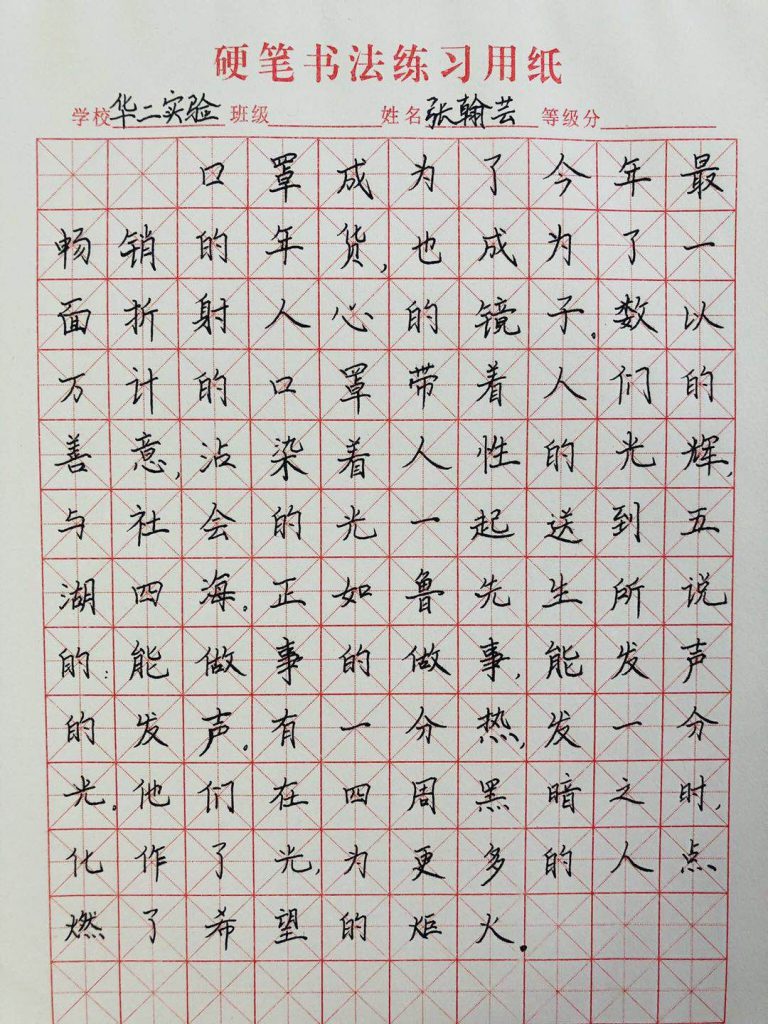 硬笔书法练习用纸
学校华二实验 班级 姓名张翰芸 等级分
口罩成为了今年最
畅销的年货,也成为了一
面折射人心的镜子。数以
万计的口罩带着人们的
善意,沾染着人性的光辉,
与社会的光一起送到五
湖四海。正如鲁先生所说
的:能做事的做事,能发声
的发声。有一分热,发一分
光。他们在四周黑暗之时,
化作了光,为更多的人点
燃了希望的炬火。